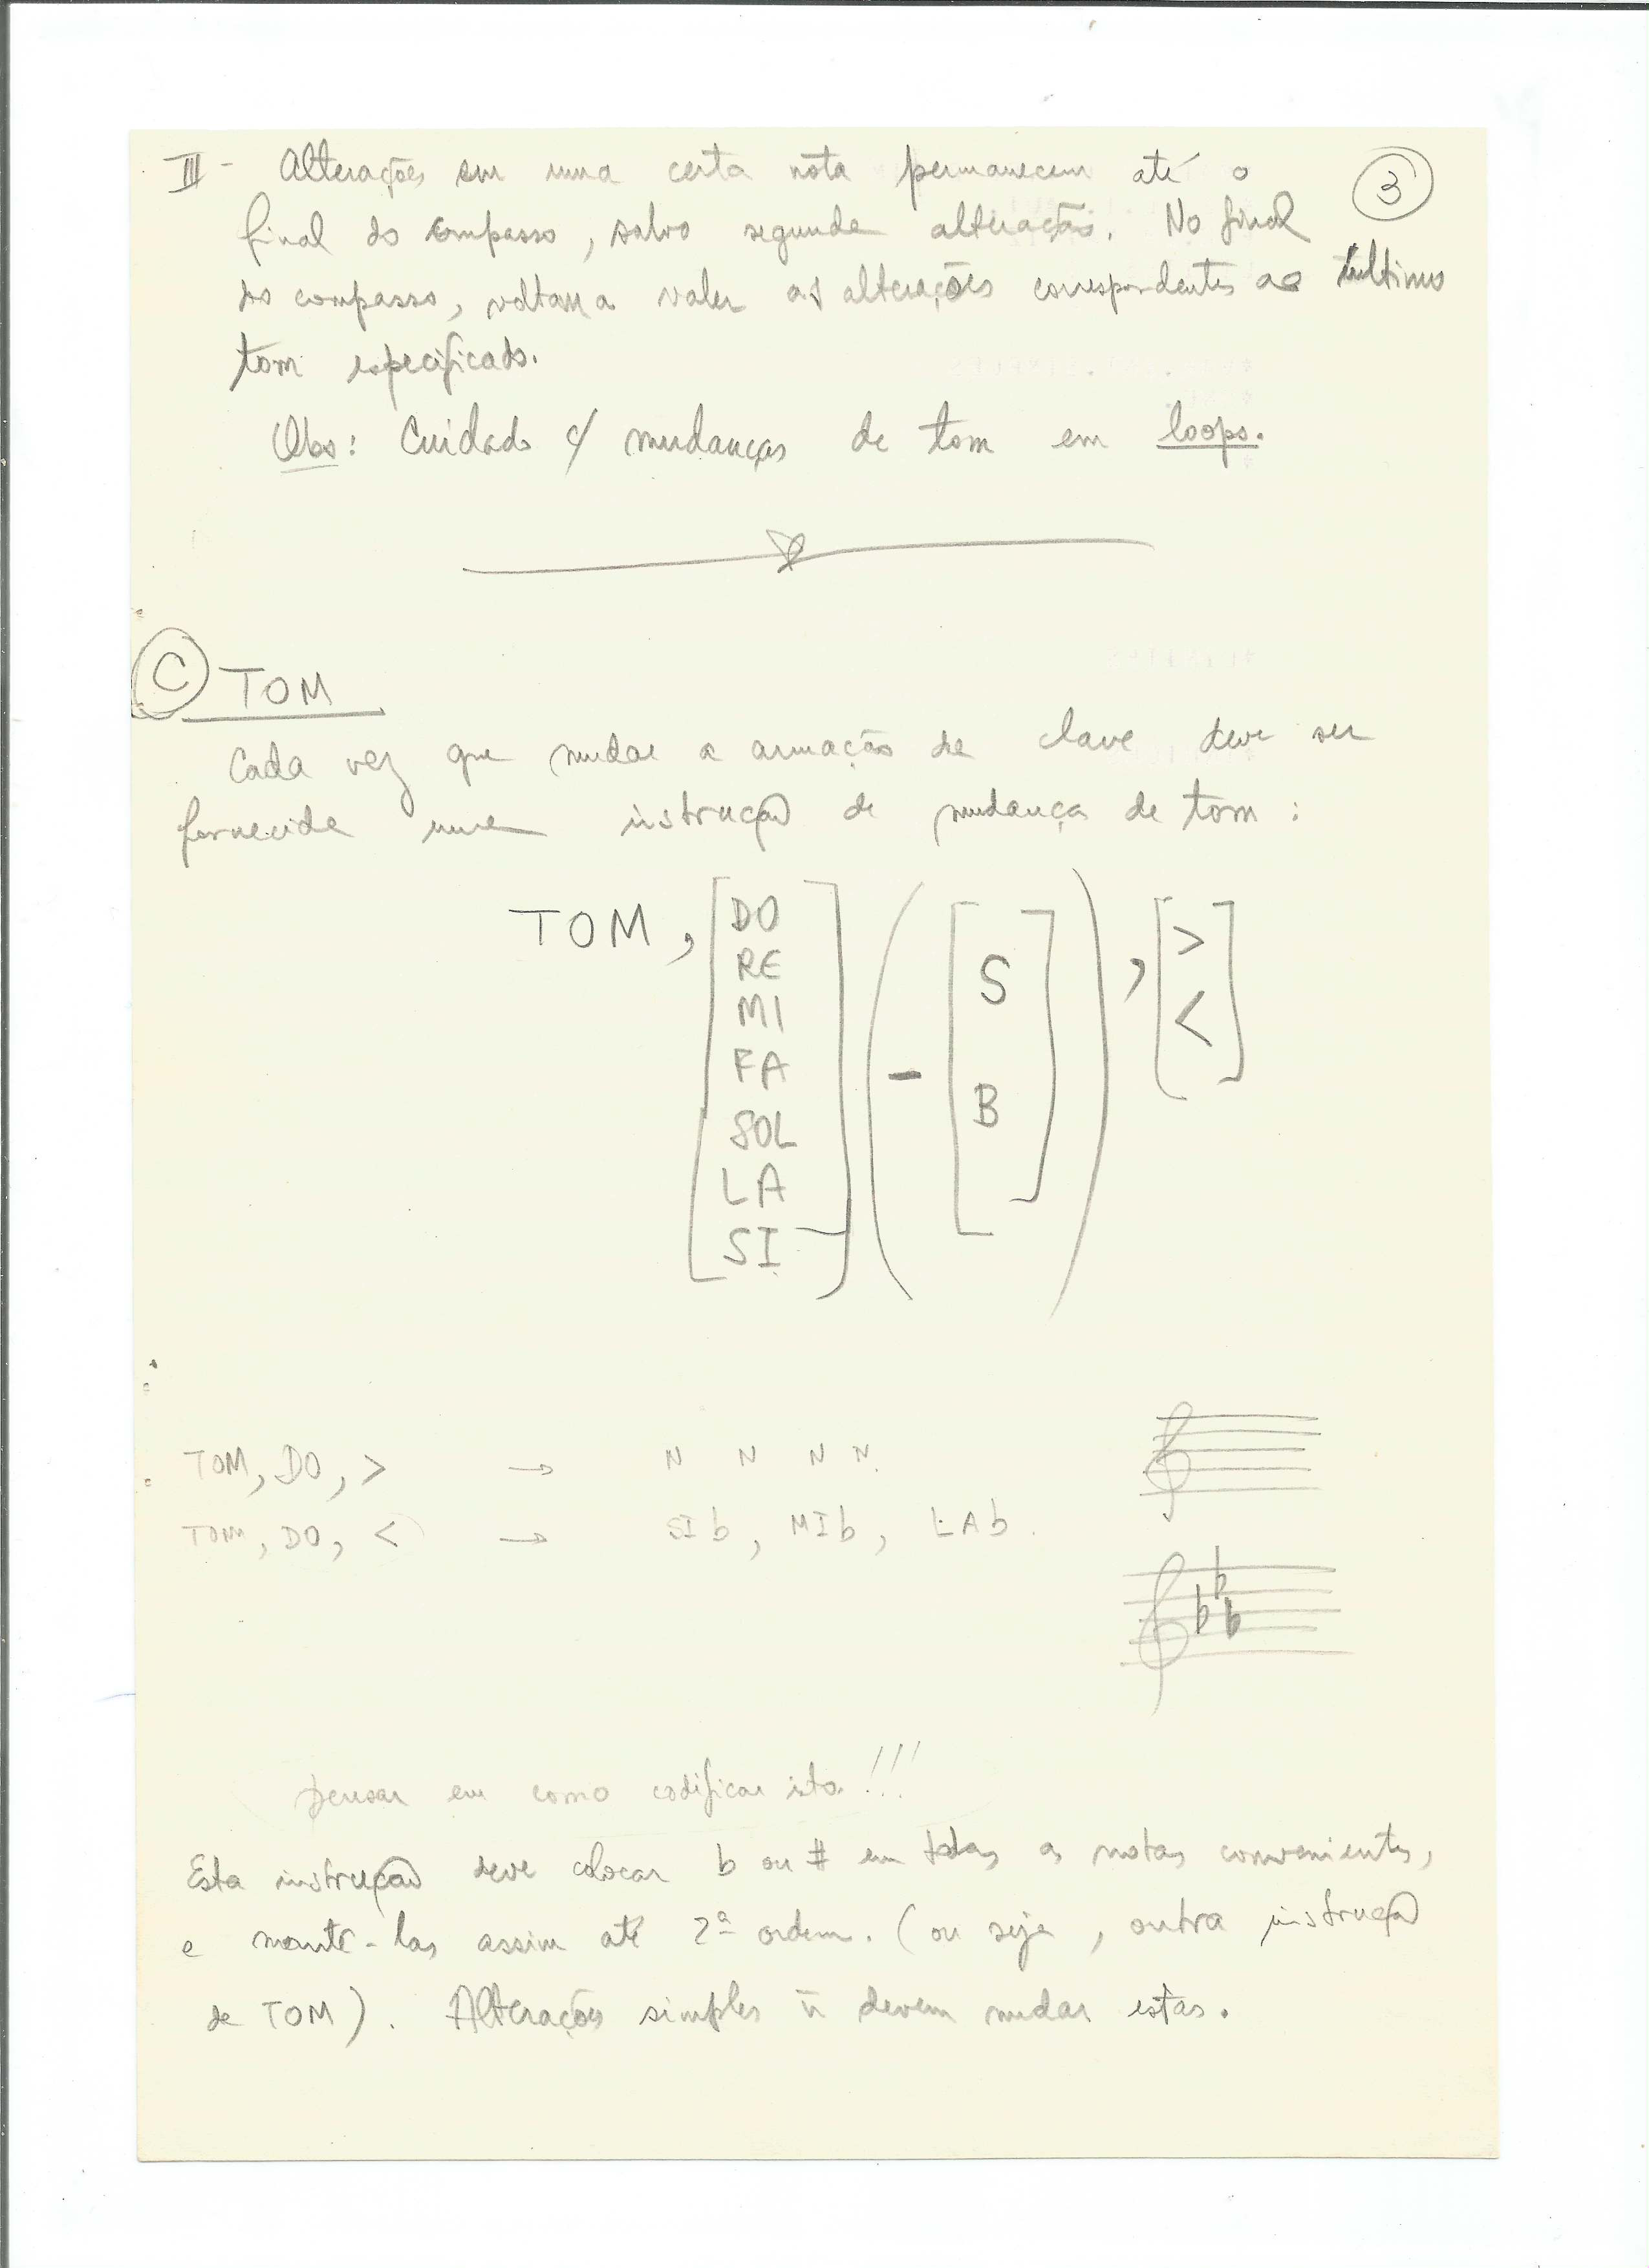 III - Alterações em uma certa nota permanecem até o
3
final do compasso, salvo segunda alteração. No final
do compasso, voltam a valer as alterações correspondentes ao último
tom especificado.
Obs: Cuidado c/ mudanças de tom em loops.
C TOM
Cada vez que mudar a armação de clave deve ser
fornecida uma instrução de mudança de tom:
TOM, [DO] (- [S]), [>]
RE
MI <
FA
SOL B
LA
SI
TOM, DO, > → N N N N.
TOM, DO, < → SI b, MI b, LA b.
b b b
pensar em como codificar isto!!!
Esta instrução deve colocar b ou # em todas as notas convenientes,
e mantê-las assim até 2ª ordem. (ou seja, outra instrução
de TOM). Alterações simples ñ devem mudar estas.